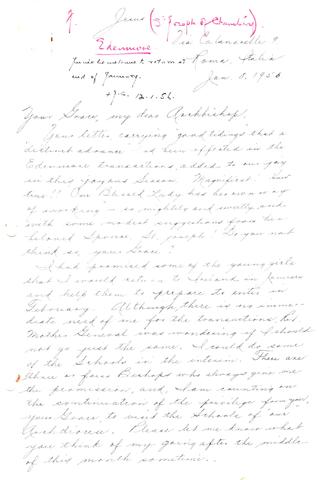 Jesus (St. Joseph of Chambéry)
Edenmore
Via Calandrelli 9
Roma, Italia
end of January.
Jan. 8, 1956
+J.C. 12.1.56.
Your Grace, my dear Archbishop,
Your letter carrying good tidings that a
"distinct advance" had been effected in the
Edenmore transactions, added to our joy
in this joyous Season. Magnificat!
true!! Our Blessed Lady has her own way
of working - so mightily and sweetly, and
with some modest suggestions from her
beloved Spouse, St. Joseph! Do you not
think so, your Grace?
I had promised some of the young girls
that I would return to Ireland in
and help them to prepare to enter in
February. Although there is no imme-
diate need of me for the transactions, but
Mother General was wondering if I should
not go just the same. I could do some
of the Schools in the interim. There are
three or four Bishops who always gave me
the permission, and, I am counting on
the continuation of the privilege from you,
your Grace to visit the Schools of our
Archdiocese. Please let me know what
you think of my going after the middle
of this month sometime.